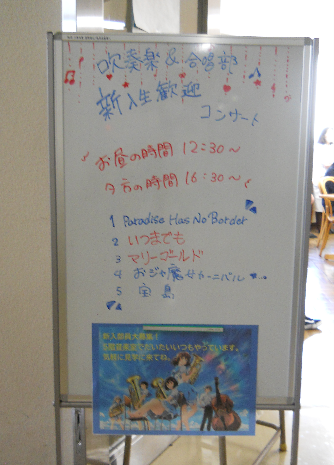 吹奏楽&合唱部
新入生歓迎
コンサート
お昼の時間 12:30~
夕方の時間 16:30~
1 Paradise Has No Border
2 いつまでも
3 マリーゴールド
4 おジャ魔女カーニバル
5 宝島
新入部員大募集!
でだいたいいつもやっています。
気軽に見学に来てね。